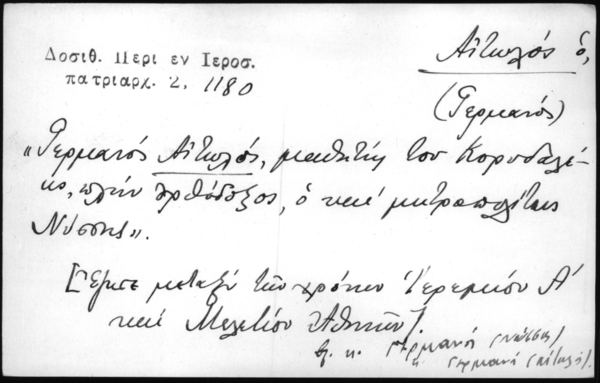 Δοσιθ. Περι εν Ιεροσ.
πατριαρχ. 2, 1180
Αἰτωλός ὁ,
(Γερμανός)
«Γερμανός Αἰτωλός, μαθητής του Κορυδαλέ-
ως, πλήν ὀρθόδοξος, ὁ και μητροπολίτης
Νύσσης».
[Ἔζησε μεταξύ τῶν χρόνων Ἱερεμίου Α΄
και Μελετίου Ἀθηνῶν].
βλ. κ. Γερμανός (Νύσσης)
κ. Γερμανός (Αἰτωλός).